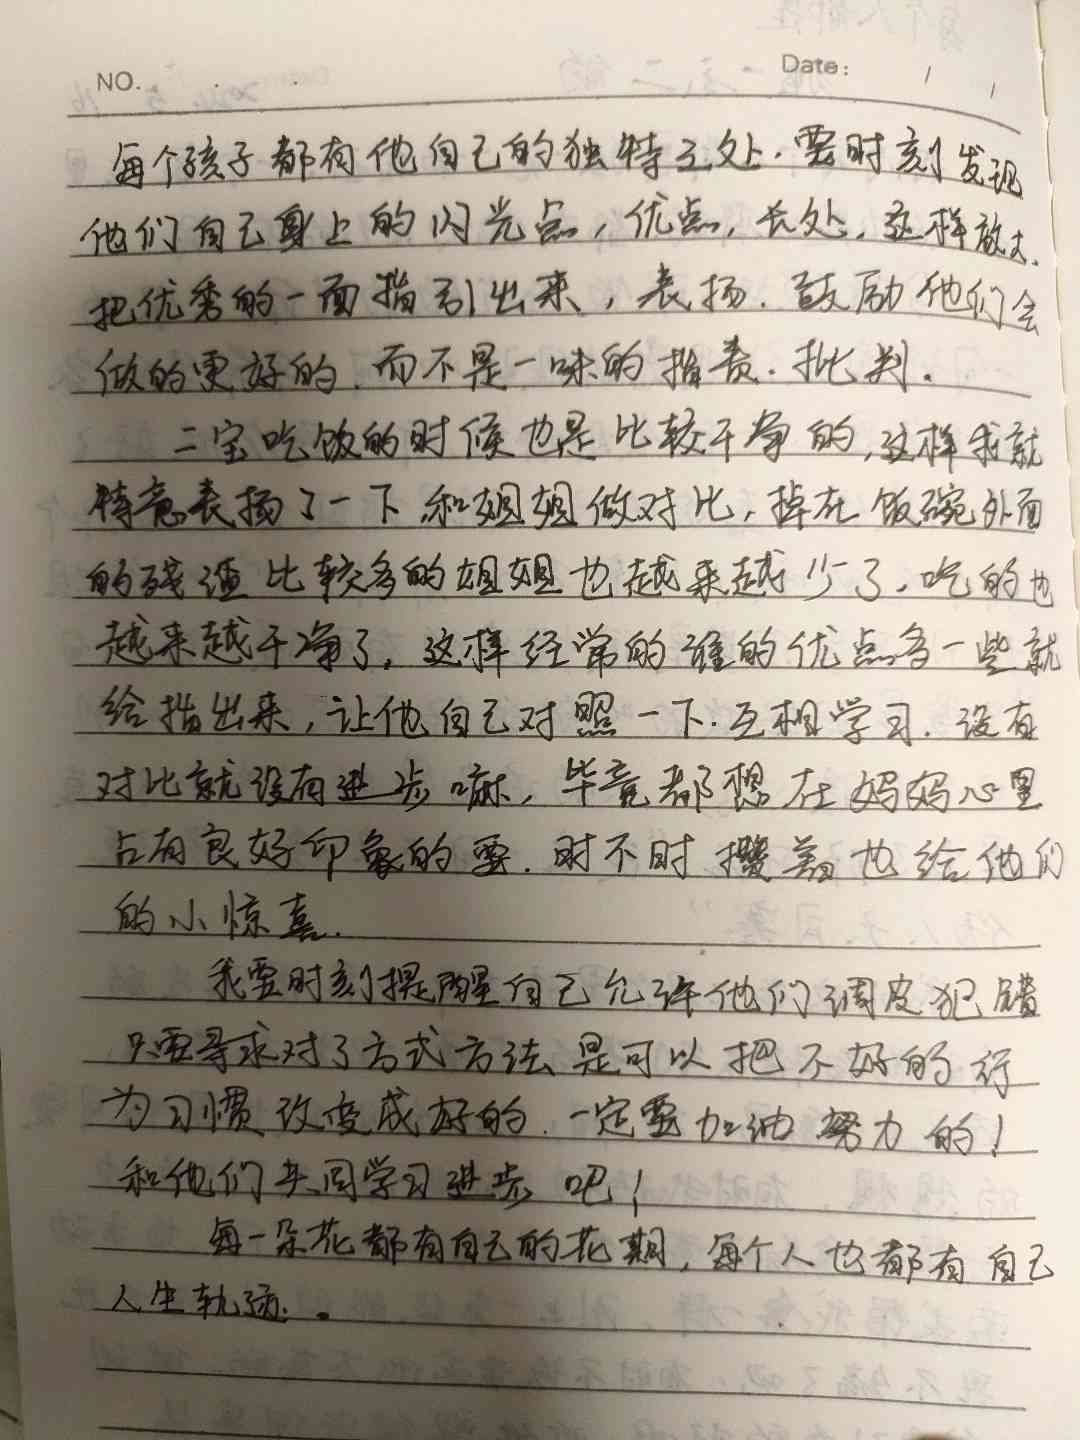 NO.
Date: / /
每个孩子都有他自己的独特之处.要时刻发现
他们自己身上的闪光点,优点,长处,这样放大.
把优秀的一面指引出来,表扬.鼓励他们会
做的更好的.而不是一味的指责.批判.
二宝吃饭的时候也是比较干净的,这样我就
特意表扬了一下,和姐姐做对比,掉在饭碗外面
的残渣比较多的姐姐也越来越少了.吃的也
越来越干净了,这样经常的谁的优点多一些就
给指出来,让他自己对照一下.互相学习.没有
对比就没有进步嘛,毕竟都想在妈妈心里
占有良好印象的要.时不时攒着也给他们
的小惊喜.
我要时刻提醒自己允许他们调皮犯错
只要寻求对了方式方法、是可以把不好的行
为习惯改变成好的.一定要加油努力的!
和他们共同学习进步吧!
每一朵花都有自己的花期,每个人也都有自己
人生轨迹.